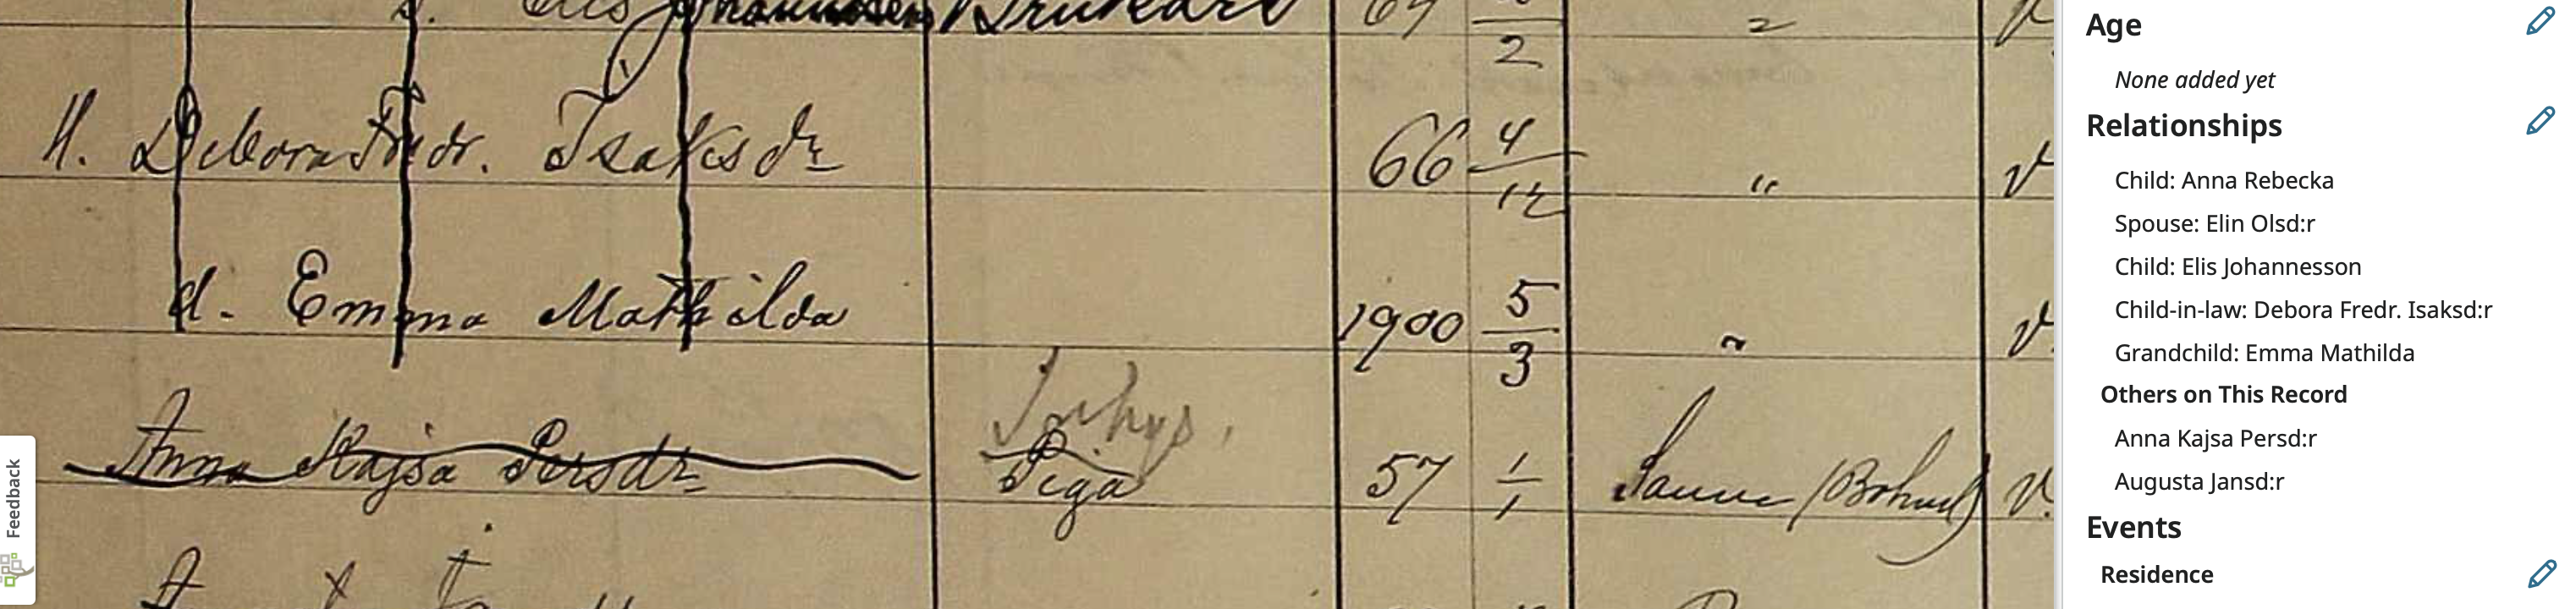 s. Elis Johannesson Brukare 69 2 "
H. Debora Fredr. Isaksdr 66 4/12 " v
d. Emma Mathilda 1900 5/3 " v.
Inhys.
Anna Kajsa Persdr Piga 57 1/1 Sanne (Bohusl) v.
Age
None added yet
Relationships
Child: Anna Rebecka
Spouse: Elin Olsd:r
Child: Elis Johannesson
Child-in-law: Debora Fredr. Isaksd:r
Grandchild: Emma Mathilda
Others on This Record
Anna Kajsa Persd:r
Augusta Jansd:r
Events
Residence
Feedback